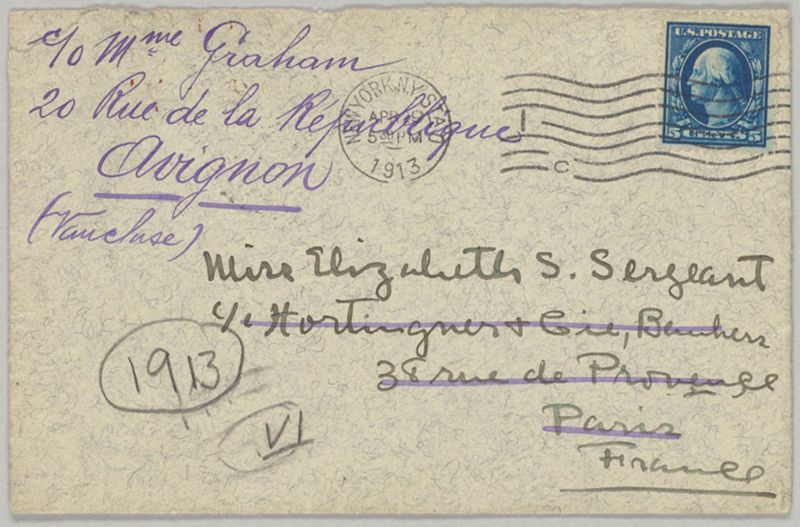 c/o Mme Graham
20 Rue de la République
Avignon
(Vaucluse)
NEW YORK, N.Y. STA.
APR 19
5 PM
1913
I
C
U.S. POSTAGE
5 CENTS 5
Miss Elizabeth S. Sergeant
c/o Hottinguer & Cie, Bankers
38 rue de Provence
Paris
France
1913
VI